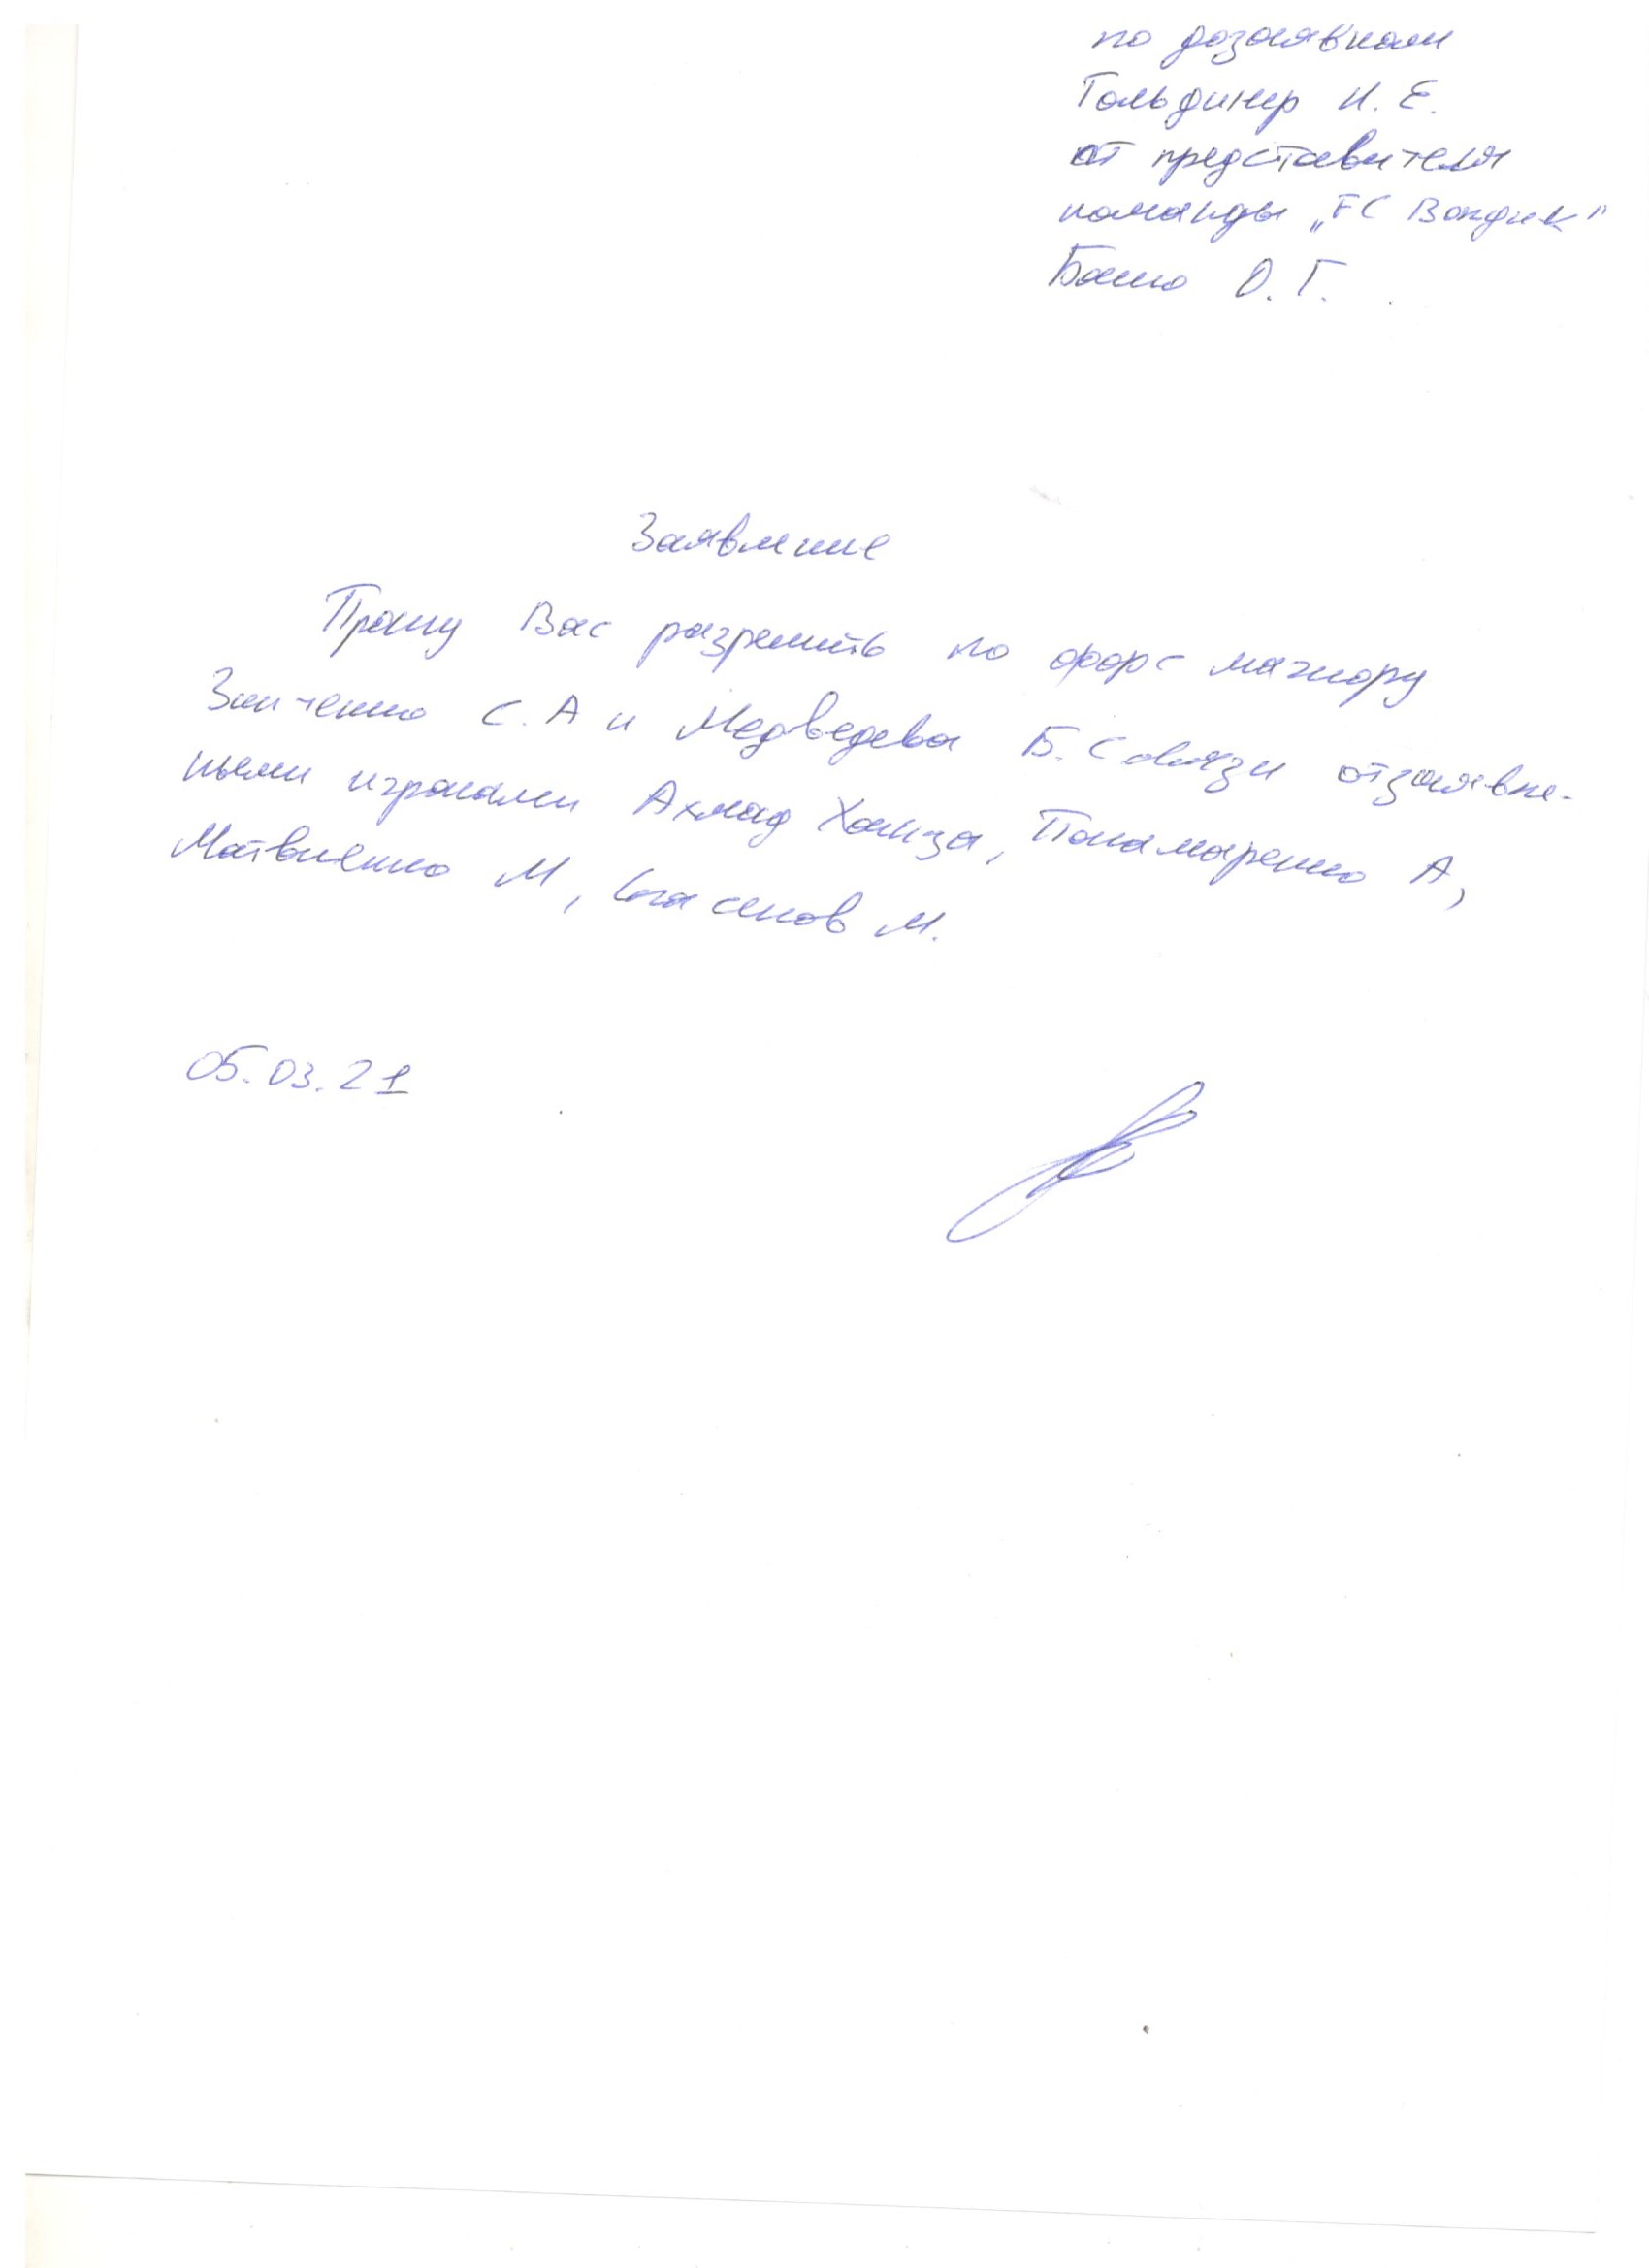 по дозаявкам
Гольдинер И. Е.
от представителя
команды „FC Вондик"
Башко О. Г.
Заявление
Прошу Вас разрешить по форс мажору
Зинченко С. А и Медведева Б. Связи отзаявле-
ными игроками Ахмад Хамза, Понамаренко А,
Матвиенко М, М.
05.03.21